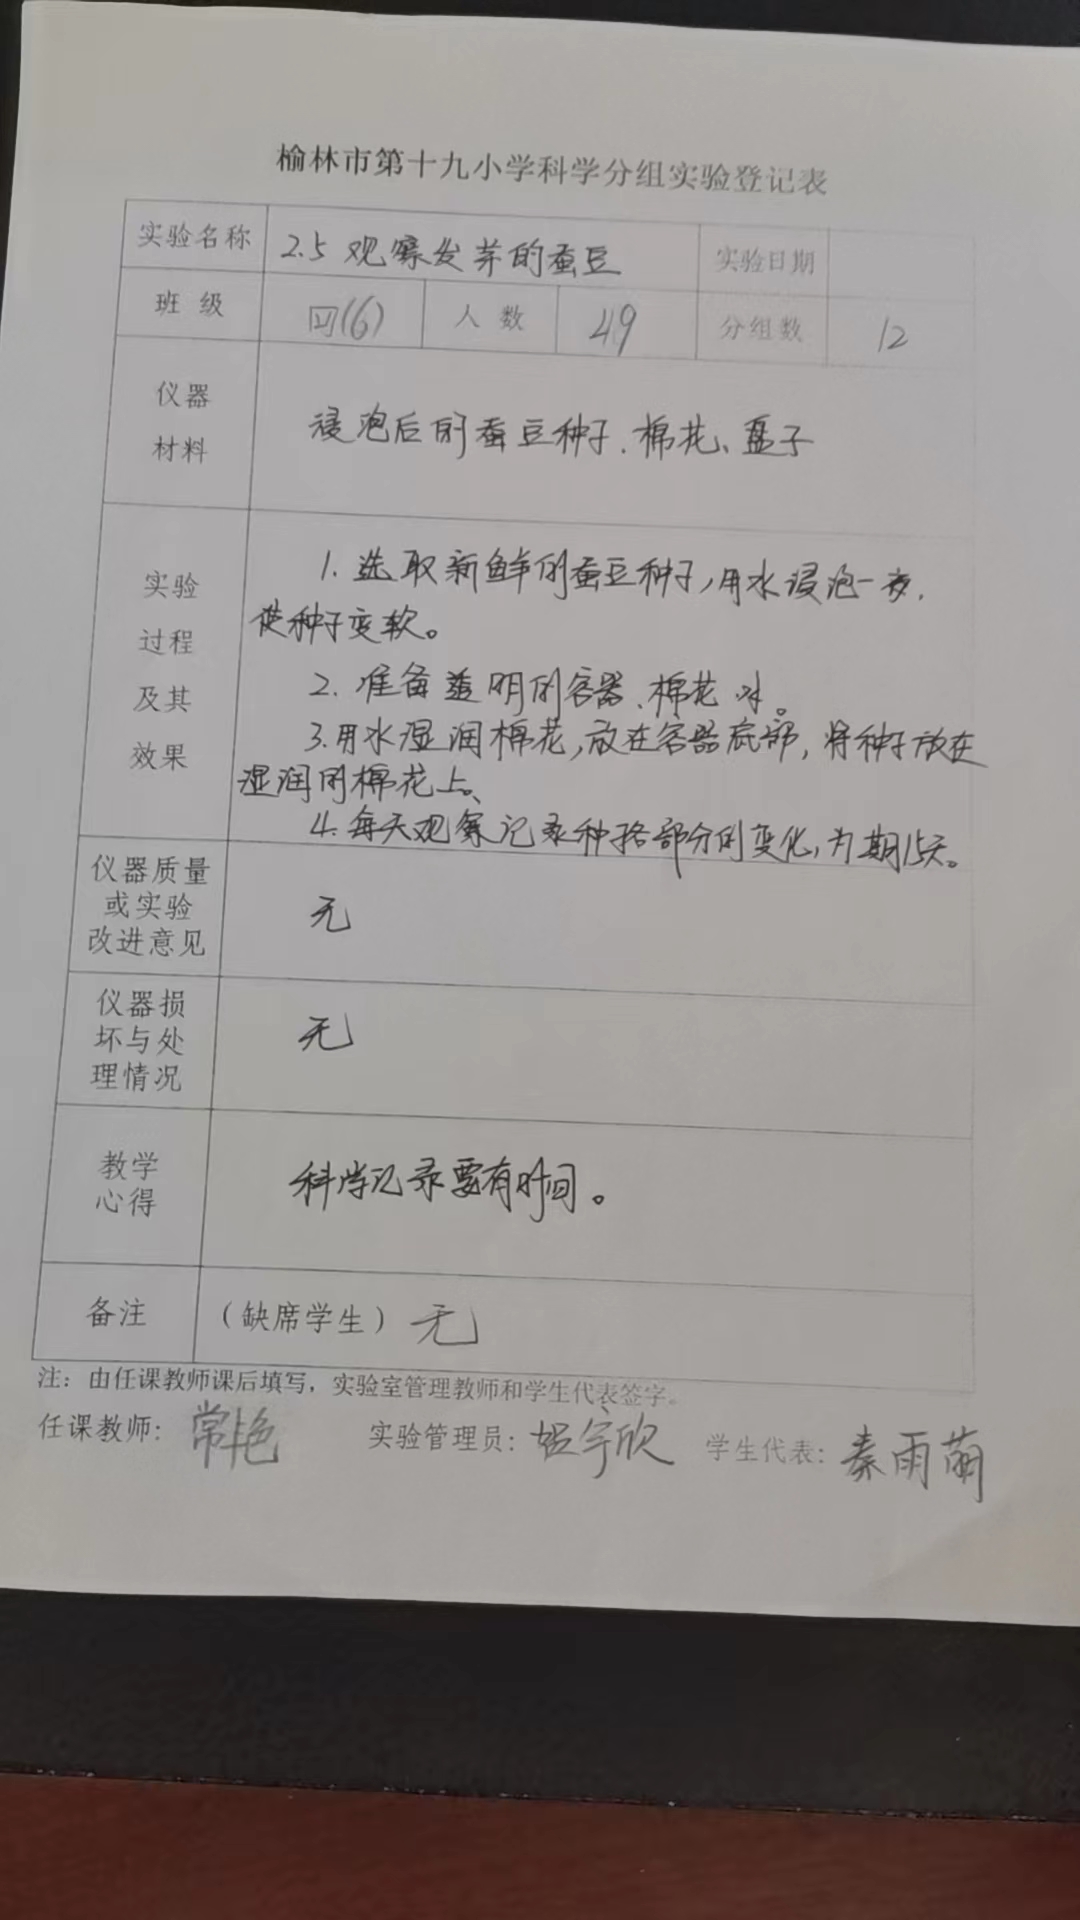 榆林市第十九小学科学分组实验登记表
实验名称 2.5 观察发芽的蚕豆 实验日期
班级 四(6) 人数 49 分组数 12
仪器
材料
浸泡后的蚕豆种子、棉花、盘子
实验
过程
及其
效果
1. 选取新鲜的蚕豆种子,用水浸泡一夜,
使种子变软。
2. 准备透明的容器、棉花、水。
3.用水湿润棉花,放在容器底部,将种子放在
湿润的棉花上。
4.每天观察记录种子各部分的变化,为期15天。
仪器质量
或实验
改进意见
无
仪器损
坏与处
理情况
无
教学
心得
科学记录要有时间。
备注 (缺席学生) 无
注:由任课教师课后填写,实验室管理教师和学生代表签字。
任课教师: 常艳 实验管理员: 宇欣 学生代表: 秦雨萌